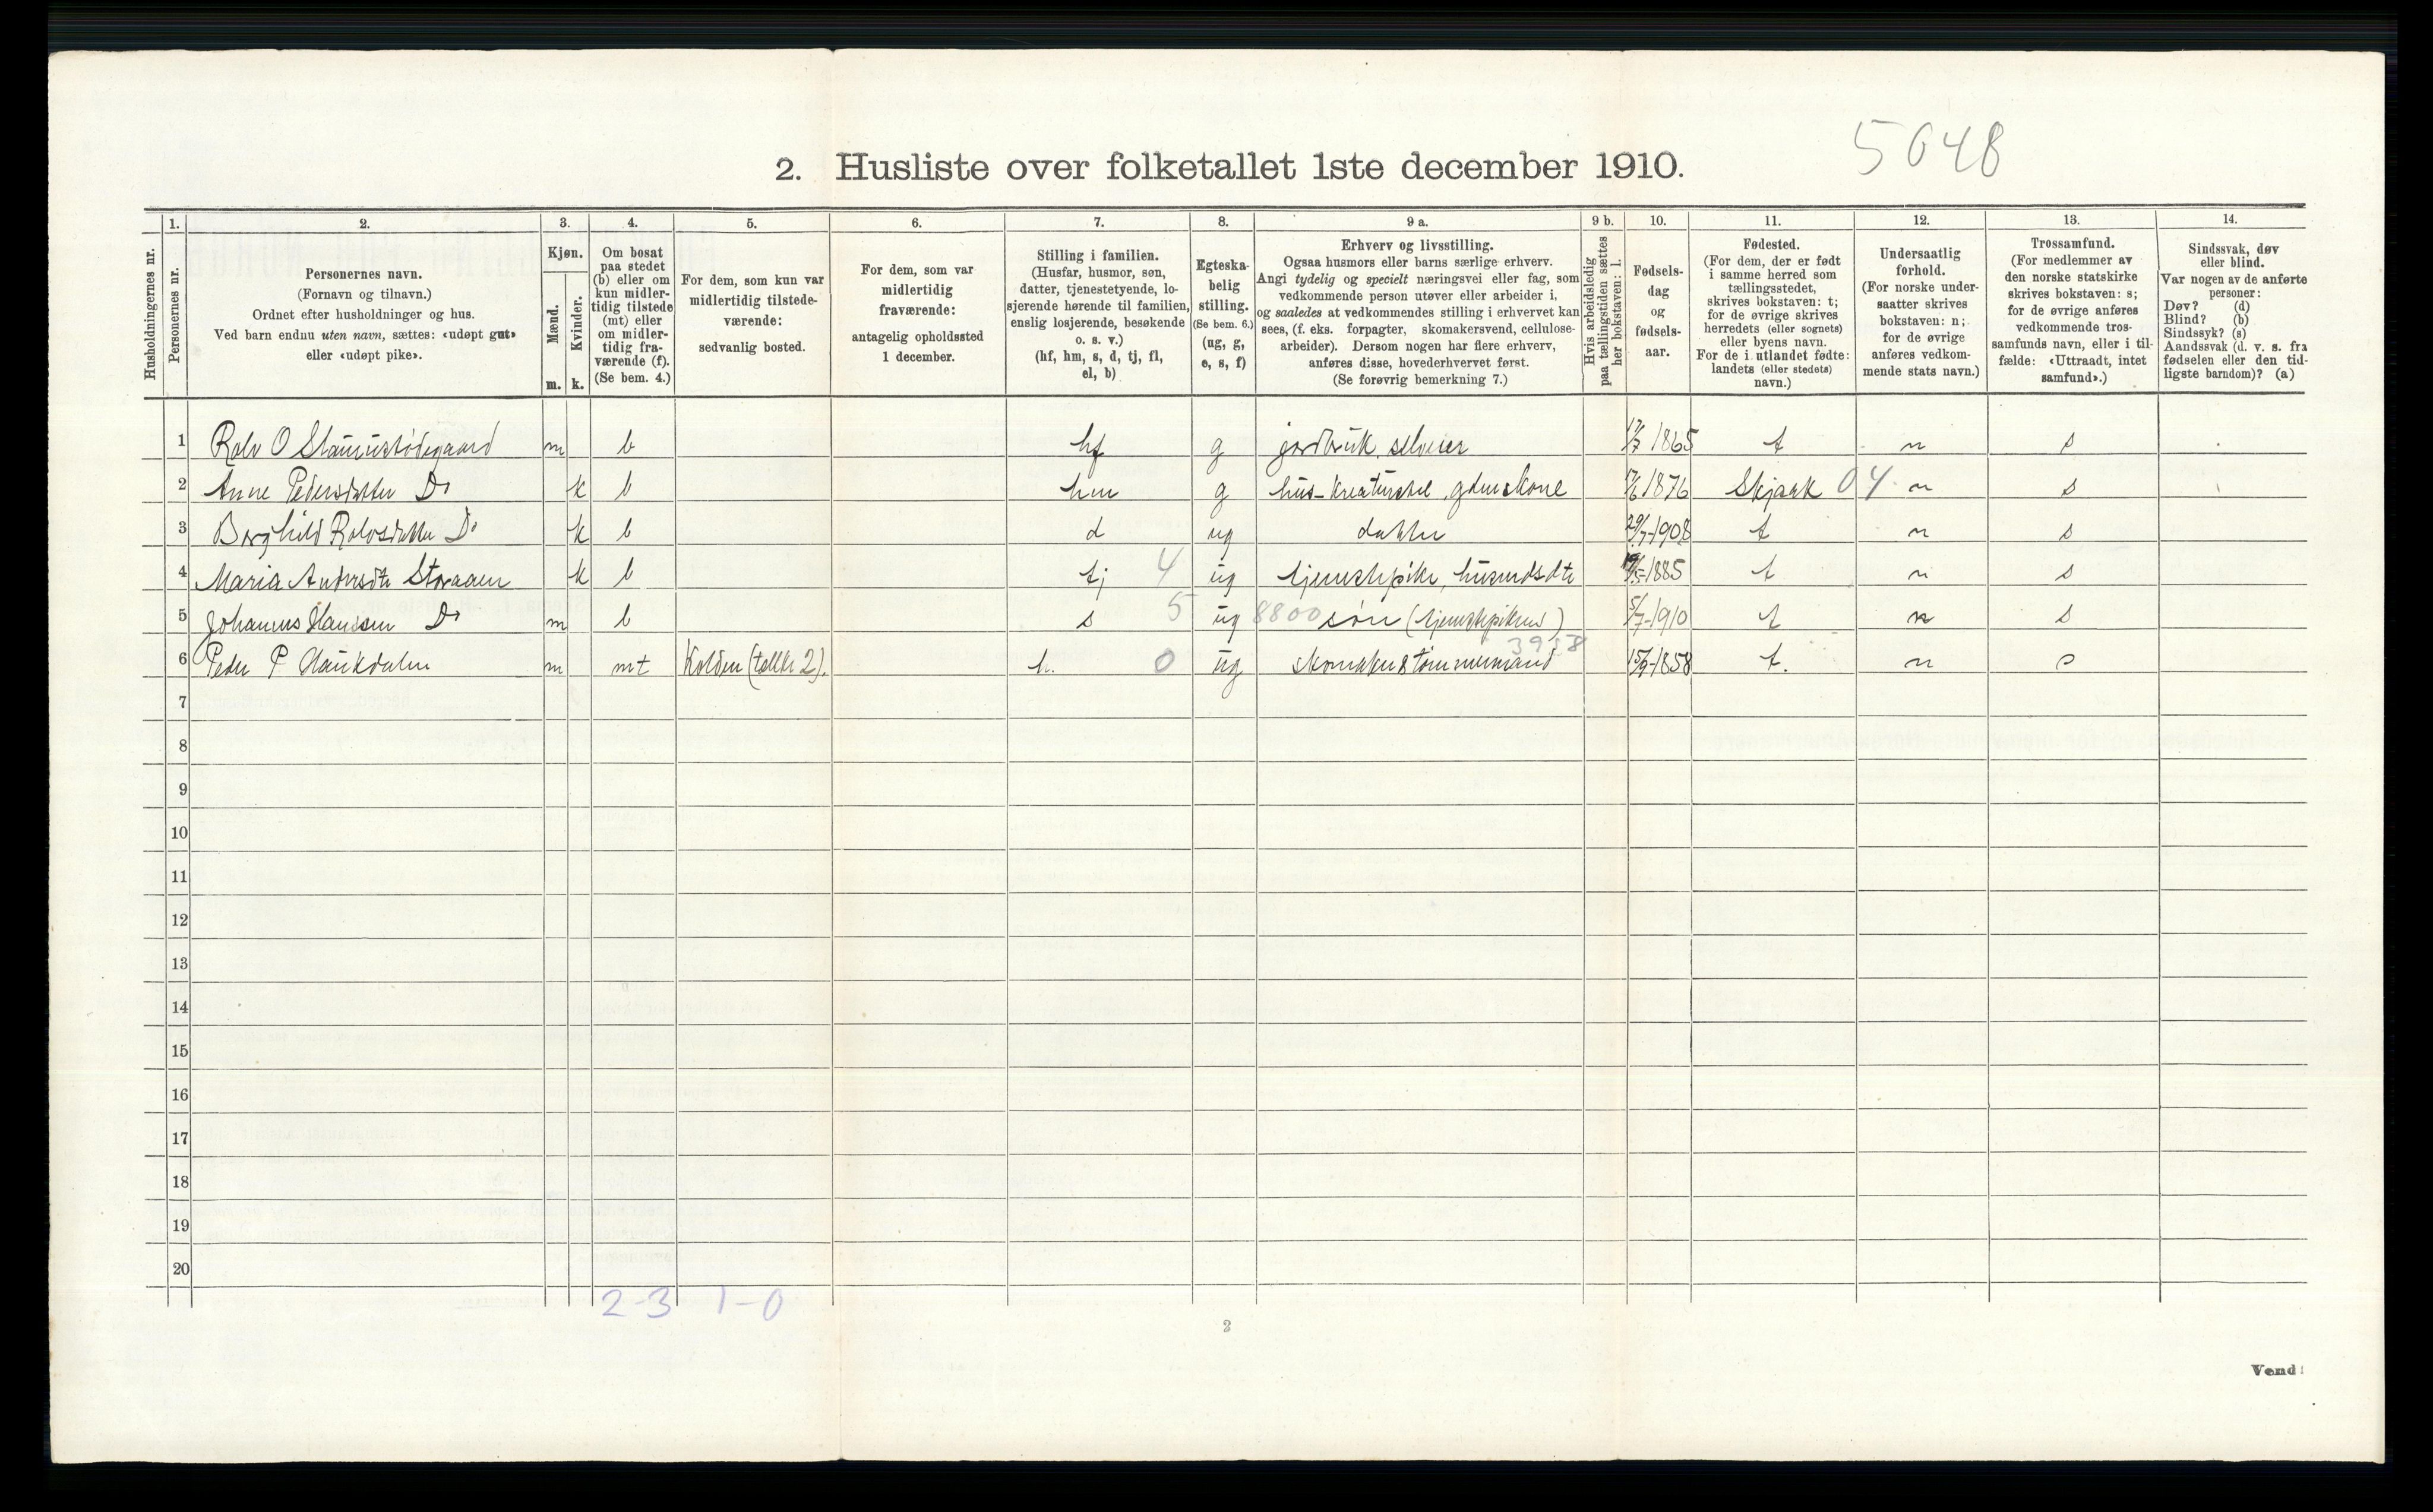 5048
2. Husliste over folketallet 1ste december 1910.
Husholdningernes nr.
1.
Personernes nr.
2.
Personernes navn.
(Fornavn og tilnavn.)
Ordnet efter husholdninger og hus.
Ved barn endnu uten navn, sættes: «udøpt gut»
eller «udøpt pike».
3.
Kjøn.
Mænd.
Kvinder.
m. k.
4.
Om bosat
paa stedet
(b) eller om
kun midler-
tidig tilstede
(mt) eller
om midler-
tidig fra-
værende (f).
(Se bem. 4.)
5.
For dem, som kun var
midlertidig tilstede-
værende:
sedvanlig bosted.
6.
For dem, som var
midlertidig
fraværende:
antagelig opholdssted
1 december.
7.
Stilling i familien.
(Husfar, husmor, søn,
datter, tjenestetyende, lo-
sjerende hørende til familien,
enslig losjerende, besøkende
o. s. v.)
(hf, hm, s, d, tj, fl,
el, b)
8.
Egteska-
belig
stilling.
(Se bem. 6.)
(ug, g,
e, s, f)
9 a.
Erhverv og livsstilling.
Ogsaa husmors eller barns særlige erhverv.
Angi tydelig og specielt næringsvei eller fag, som
vedkommende person utøver eller arbeider i,
og saaledes at vedkommendes stilling i erhvervet kan
sees, (f. eks. forpagter, skomakersvend, cellulose-
arbeider). Dersom nogen har flere erhverv,
anføres disse, hovederhvervet først.
(Se forøvrig bemerkning 7.)
9 b.
Hvis arbeidsledig
paa tællingstiden sættes
her bokstaven: l.
10.
Fødsels-
dag
og
fødsels-
aar.
11.
Fødested.
(For dem, der er født
i samme herred som
tællingsstedet,
skrives bokstaven: t;
for de øvrige skrives
herredets (eller sognets)
eller byens navn.
For de i utlandet fødte:
landets (eller stedets)
navn.)
12.
Undersaatlig
forhold.
(For norske under-
saatter skrives
bokstaven: n;
for de øvrige
anføres vedkom-
mende stats navn.)
13.
Trossamfund.
(For medlemmer av
den norske statskirke
skrives bokstaven: s;
for de øvrige anføres
vedkommende tros-
samfunds navn, eller i til-
fælde: «Uttraadt, intet
samfund».)
14.
Sindssvak, døv
eller blind.
Var nogen av de anførte
personer:
Døv? (d)
Blind? (b)
Sindssyk? (s)
Aandssvak (d. v. s. fra
fødselen eller den tid-
ligste barndom)? (a)
1 Rolv O m b hf g jordbruk, selveier 1865 t n s
2 Anne Pedersdatter Do k b hm g hus- kreaturstel, gdmskone 1876 Skjaak 04 n s
3 Borghild Rolvsdatter Do k b d ug datter 1908 t n s
4 Maria Andersdtr Storaaen k b tj 4 ug tjenestepike, husmdsdtr 1885 t n s
5 Johannes Hansen Do m b s 5 ug 8800 søn (tjenestepikens) 5/7-1910 t n s
6 Peder P Haukdalen m mt Kolden (tællkr 2). b. 0 ug skomaker & tømmermand 1858 t. n s
7
8
9
10
11
12
13
14
15
16
17
18
19
20
2-3 1-0
2
Vend!